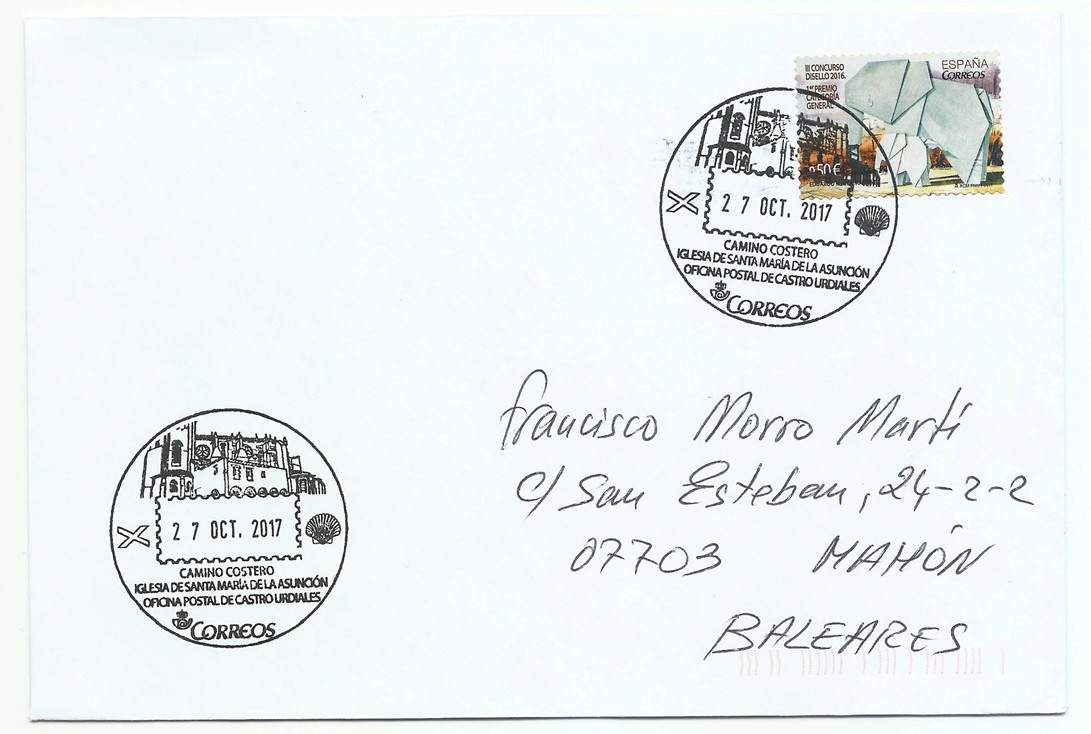 III CONCURSO
DISELLO 2016.
1er PREMIO
CATEGORÍA
GENERAL
ESPAÑA
CORREOS
0,50€
27 OCT. 2017
CAMINO COSTERO
IGLESIA DE SANTA MARÍA DE LA ASUNCIÓN
OFICINA POSTAL DE CASTRO URDIALES
CORREOS
Francisco Morro Martí
c/ San Esteban, 24-2-2
07703 MAHÓN
BALEARES
27 OCT. 2017
CAMINO COSTERO
IGLESIA DE SANTA MARÍA DE LA ASUNCIÓN
OFICINA POSTAL DE CASTRO URDIALES
CORREOS